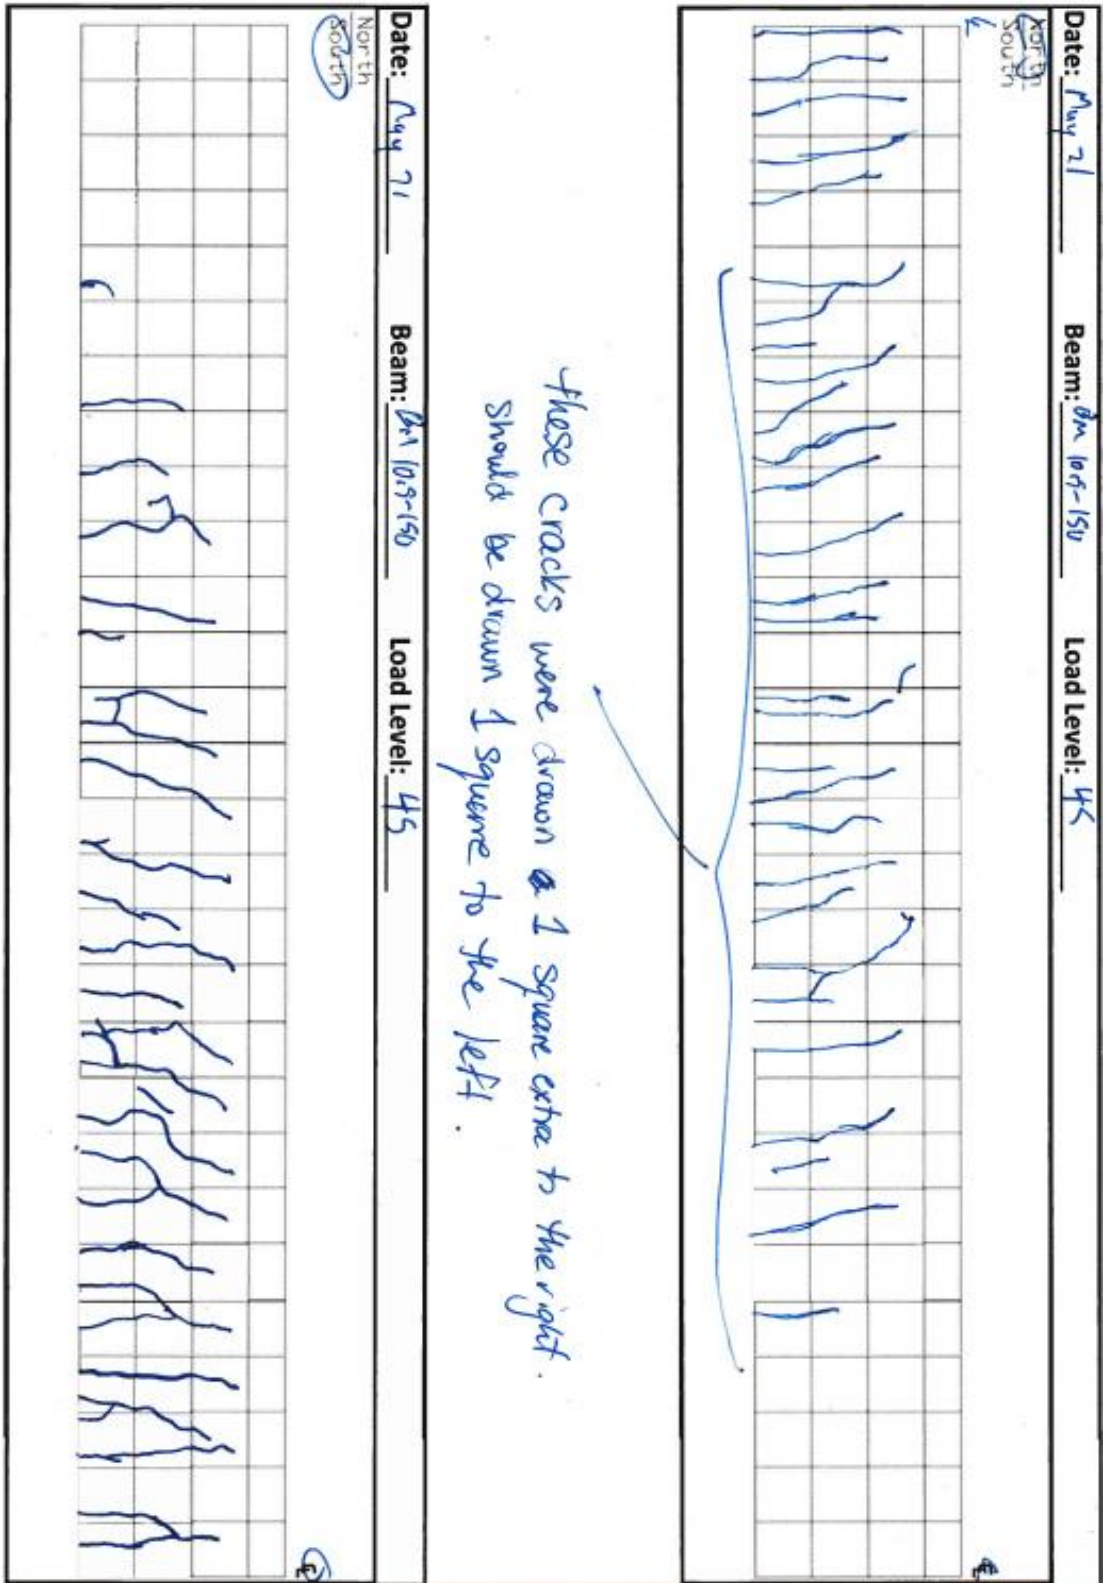 Date: May 21 Beam: BM 10.9-150 Load Level: 45
North
South
℄
℄
these cracks were drawn 1 square extra to the right.
should be drawn 1 square to the left.
Date: May 21 Beam: BM 10.9-150 Load Level: 45
North
South
℄